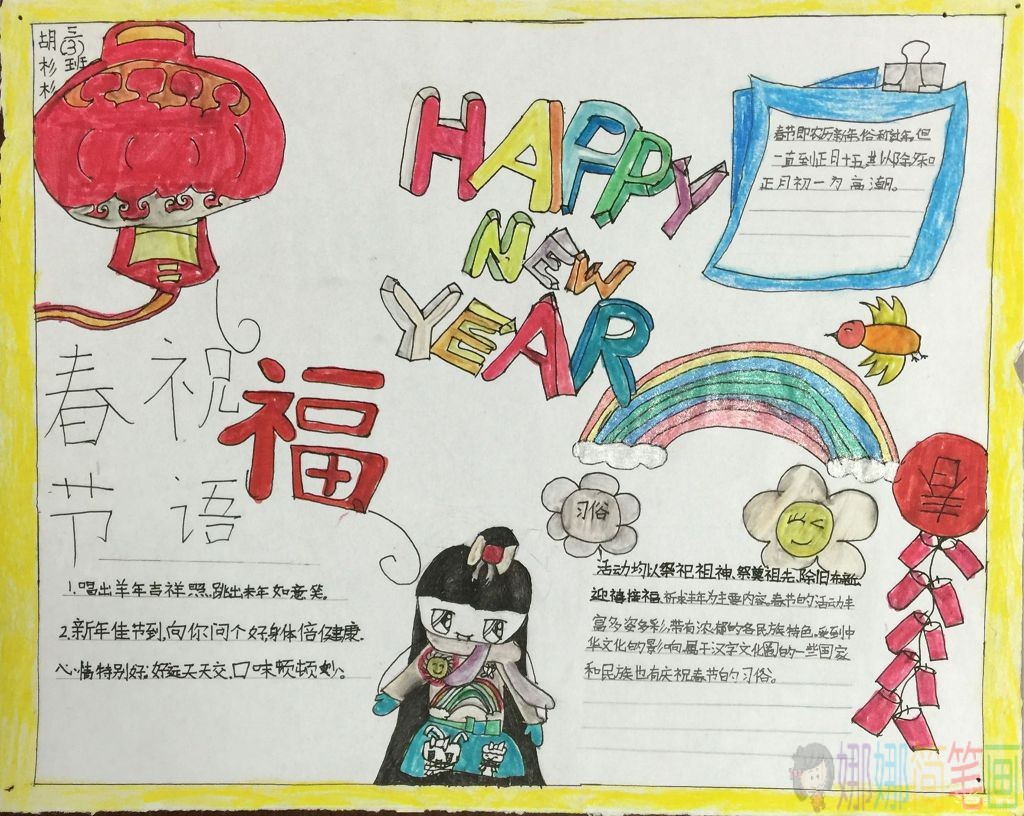 三(3)班
胡杉杉
HAPPY
NEW
YEAR
春节即农历新年,俗称过年,但
一直到正月十五,其以除夕和
正月初一为高潮。
春节
祝语
福
1.唱出羊年吉祥照,跳出未年如意笑。
2.新年佳节到,向你问个好,身体倍儿健康,
心情特别好。好运天天交,口味顿顿妙。
习俗
活动均以祭祀祖神、祭奠祖先、除旧布新、
迎禧接福、祈求丰年为主要内容。春节的活动丰
富多姿多彩,带有浓郁的各民族特色。受到中
华文化的影响,属于汉字文化圈的一些国家
和民族也有庆祝春节的习俗。
娜娜简笔画